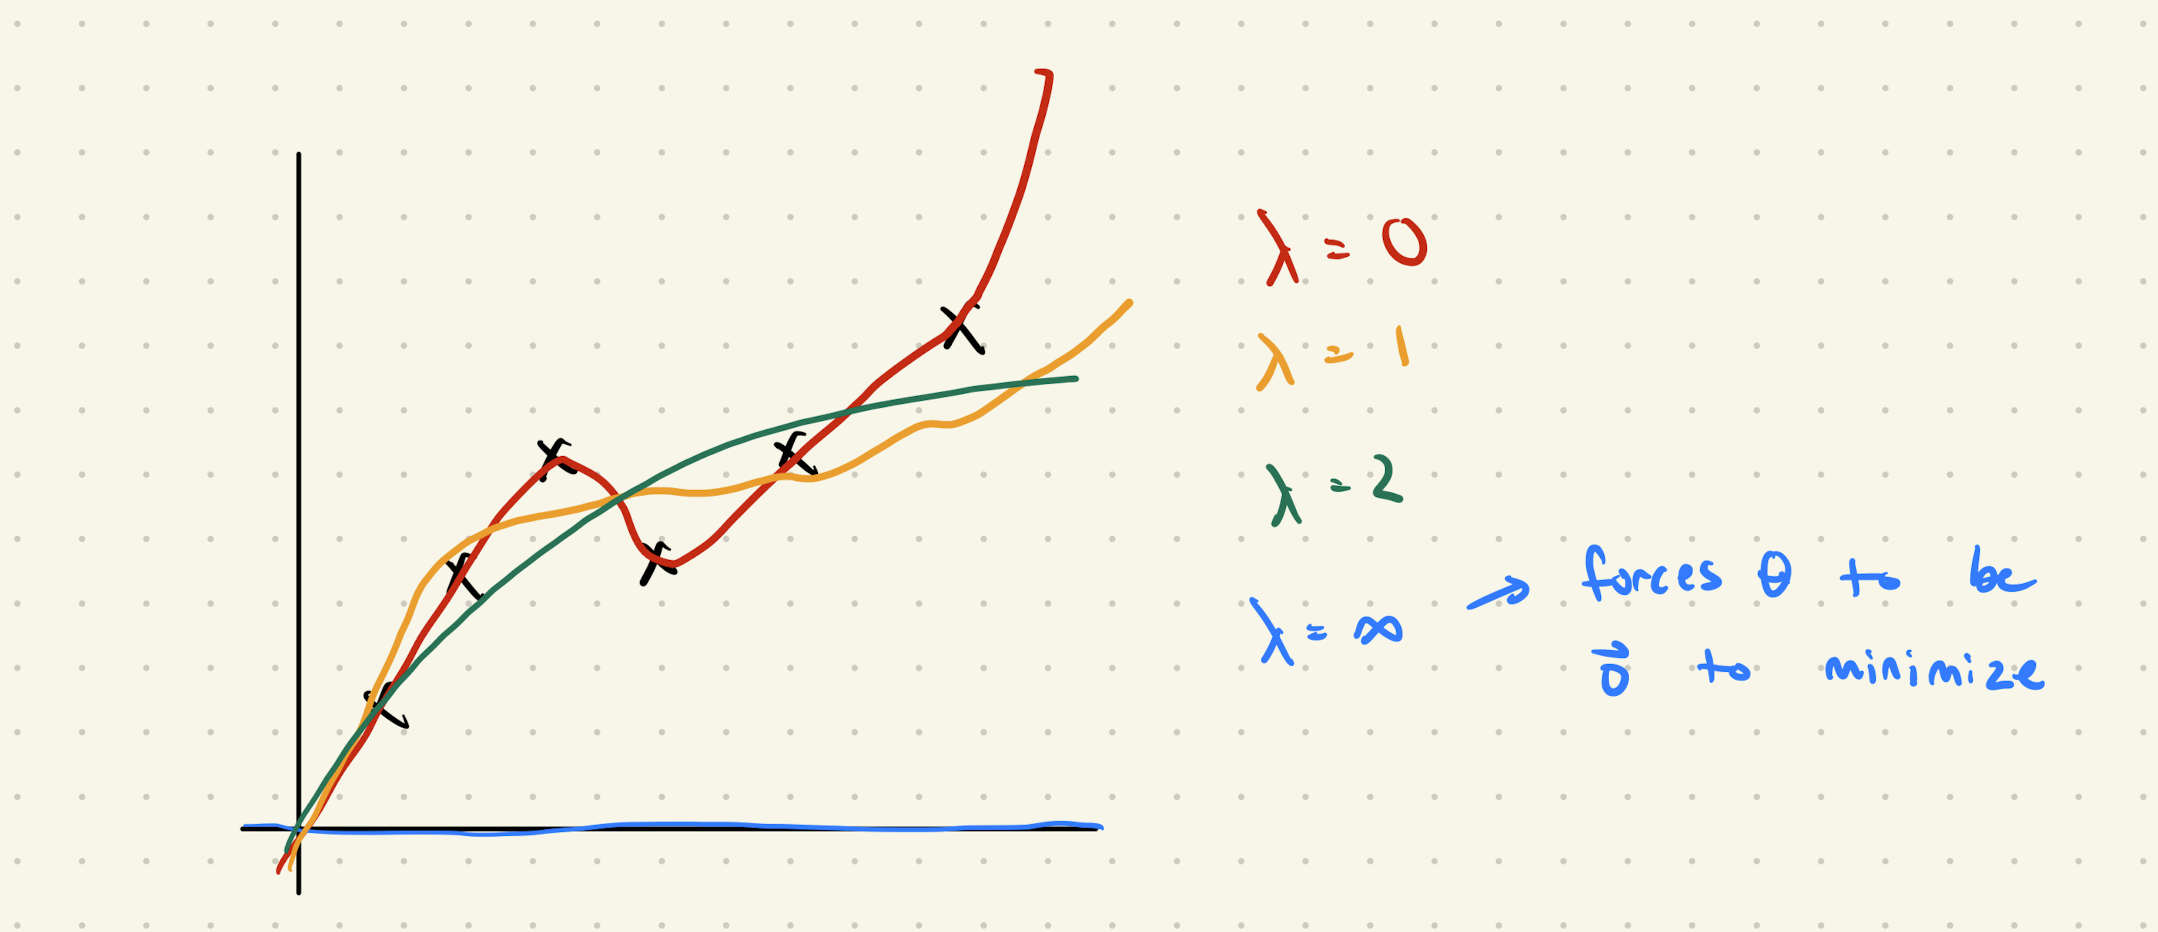 λ = 0
λ = 1
λ = 2
λ = ∞ → forces θ to be
0⃗ to minimize